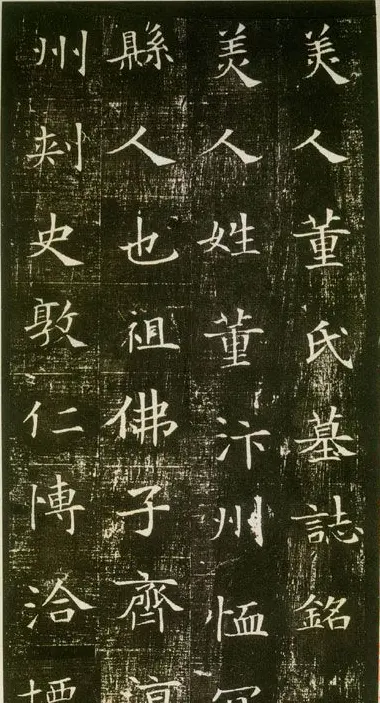 美人董氏墓誌銘
美人姓董汴州恤
縣人也祖佛子齊
州刺史敦仁博洽